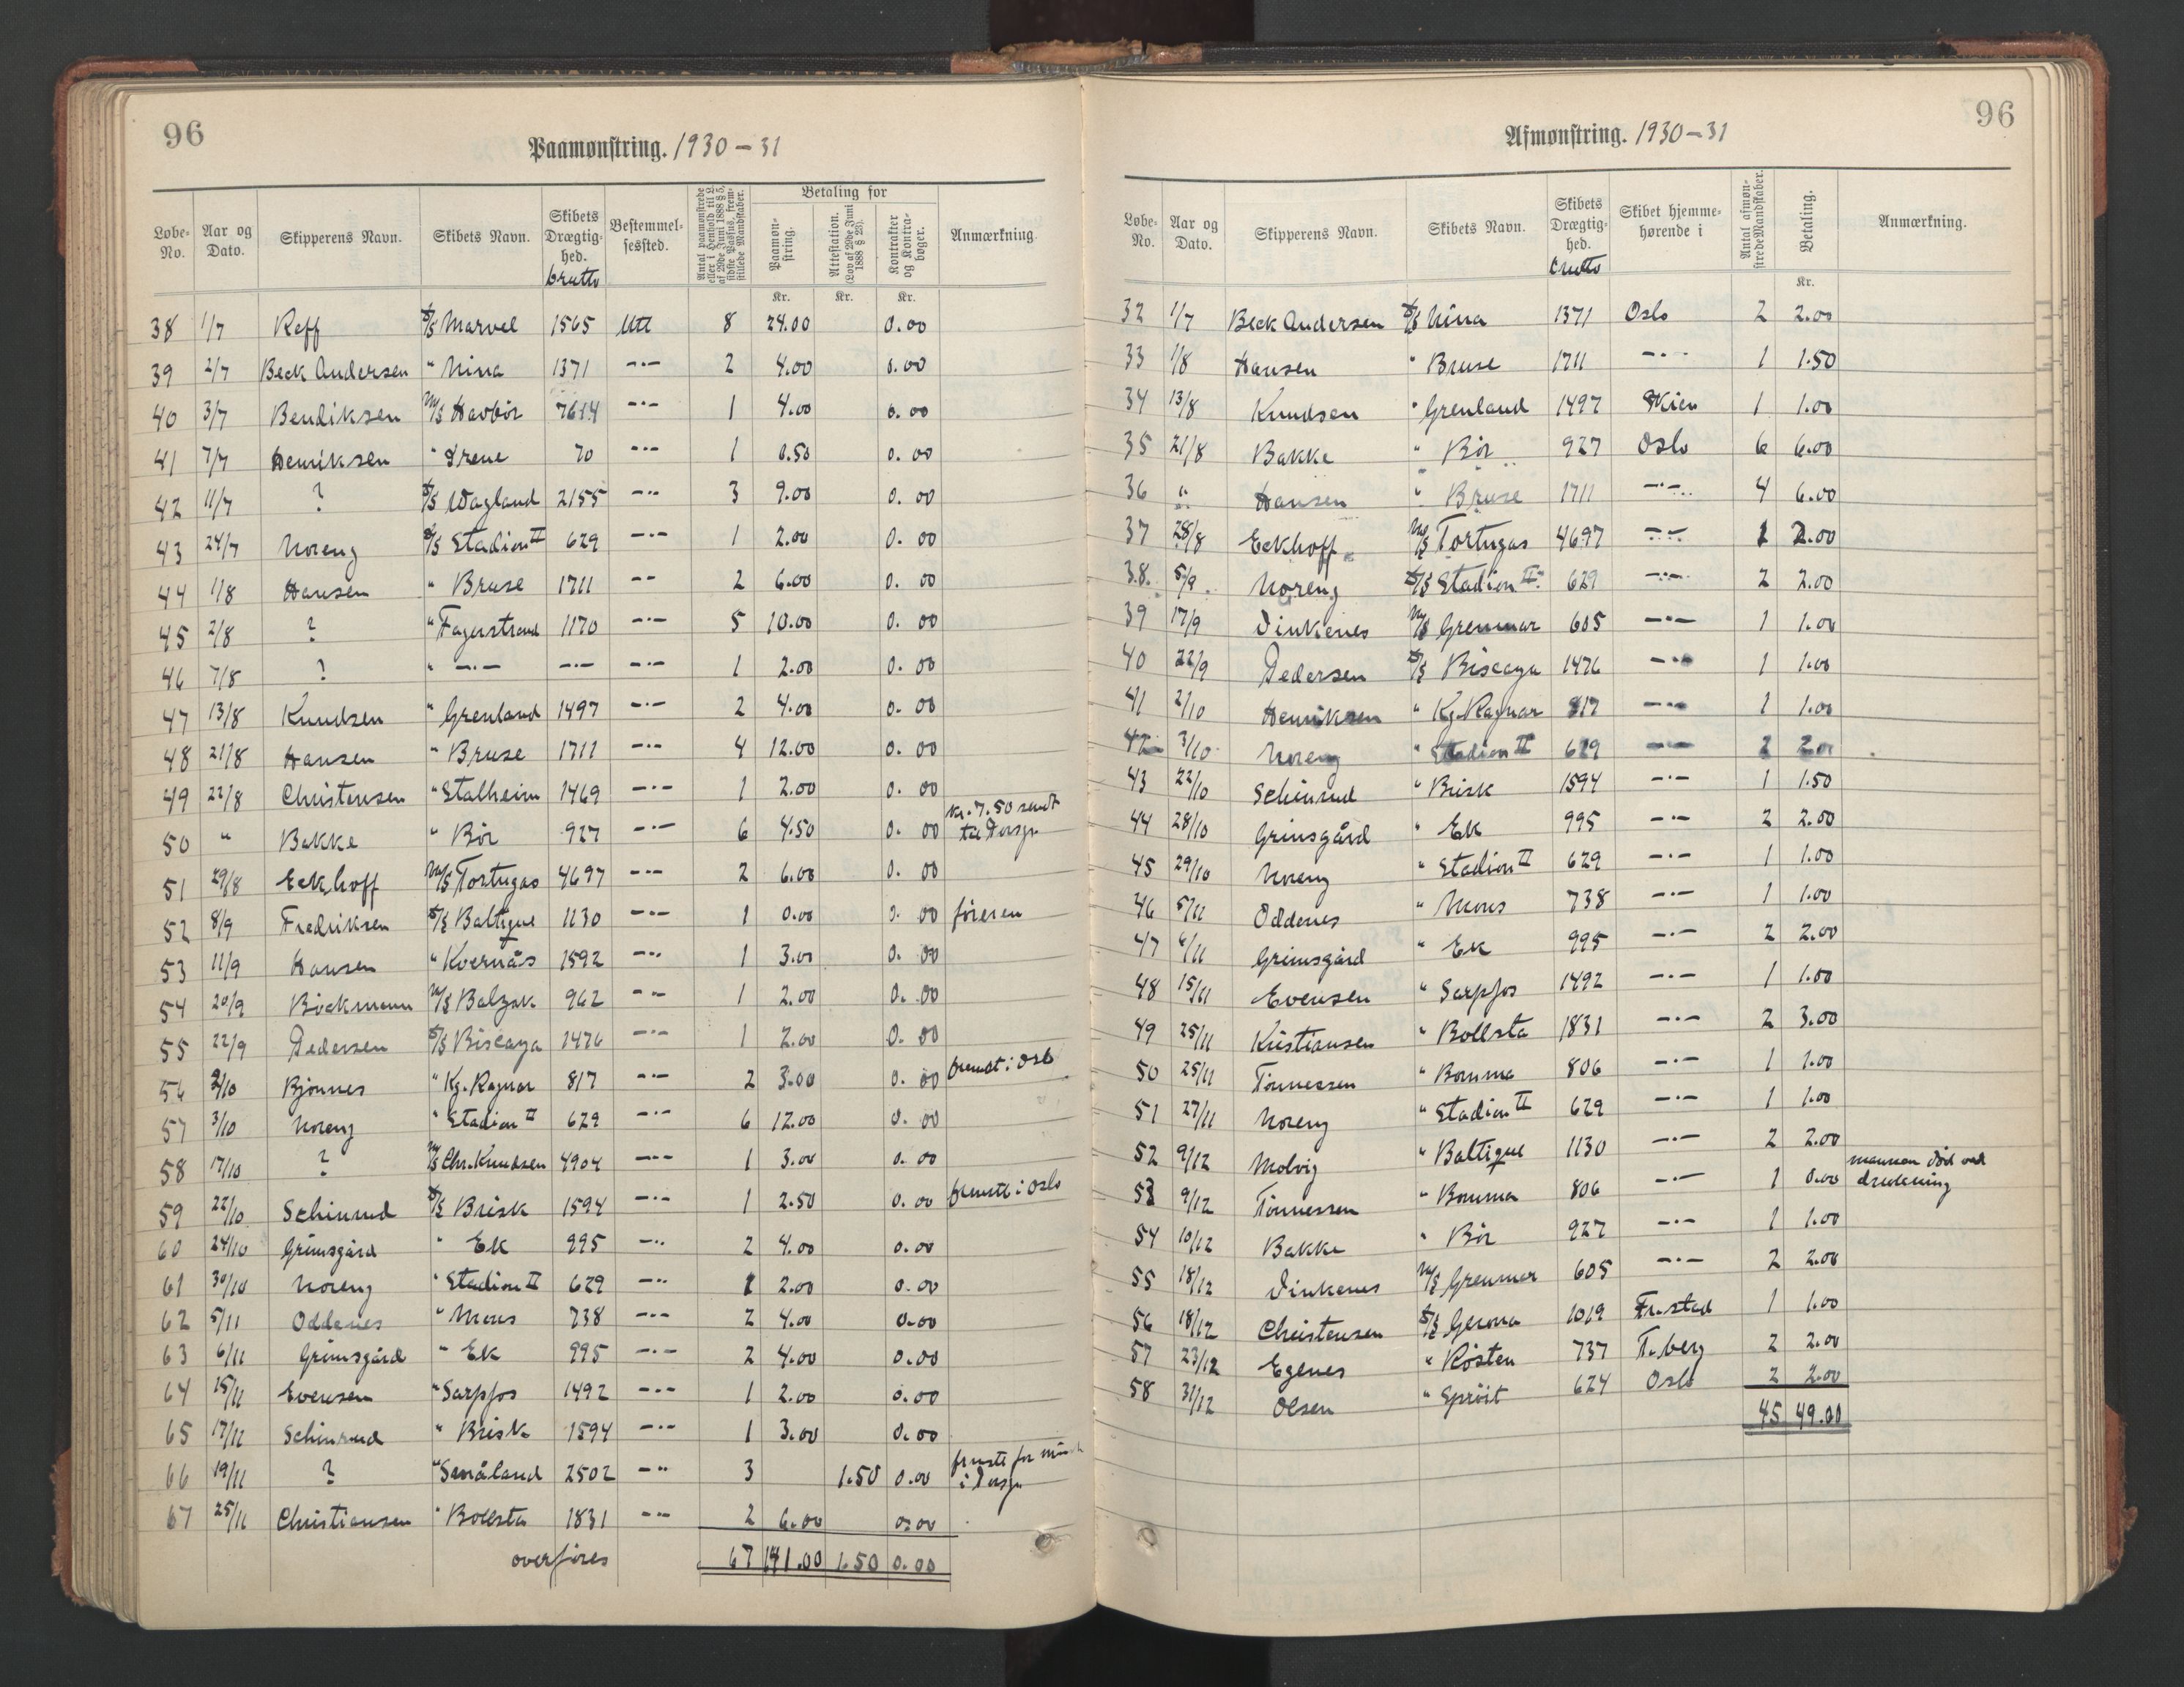 96
Paamønstring. 1930-31
Løbe-No. | Aar og Dato. | Skipperens Navn. | Skibets Navn. | Skibets Drægtighed. brutto | Bestemmelsessted. | Antal paamønstrede eller i Henhold til L. af 29de Juni 1888 § 5, sidste Passus, fremstillede Mandskaber. | Betaling for | Paamønstring. Kr. | Attestation. (Lov af 29de Juni 1888 § 23). Kr. | Kontrakter og Kontrabøger. Kr. | Anmærkning
38 | 1/7 | Reff | S/S Marvel | 1565 | Utl | 8 | 24.00 | | 0.00
39 | 2/7 | Beck Andersen | " Nina | 1371 | -"- | 2 | 4.00 | | 0.00
40 | 3/7 | Bendiksen | M/S Havbör | 7614 | -"- | 1 | 4.00 | | 0.00
41 | 7/7 | Henriksen | " Irene | 70 | -"- | 1 | 0.50 | | 0.00
42 | 11/7 | ? | S/S Vagland | 2155 | -"- | 3 | 9.00 | | 0.00
43 | 24/7 | Noreng | S/S Stadion II | 629 | -"- | 1 | 2.00 | | 0.00
44 | 1/8 | Hansen | " Bruse | 1711 | -"- | 2 | 6.00 | | 0.00
45 | 2/8 | ? | " Fagerstrand | 1170 | -"- | 5 | 10.00 | | 0.00
46 | 7/8 | ? | " -"- | -"- | -"- | 1 | 2.00 | | 0.00
47 | 13/8 | Knudsen | " Grenland | 1497 | -"- | 2 | 4.00 | | 0.00
48 | 21/8 | Hansen | " Bruse | 1711 | -"- | 4 | 12.00 | | 0.00
49 | 22/8 | Christensen | " Stalheim | 1469 | -"- | 1 | 2.00 | | 0.00
50 | " | Bakke | " Bör | 927 | -"- | 6 | 4.50 | | 0.00 | kr. 7.50 sendt til Porsgr
51 | 29/8 | Eckhoff | M/S Tortugas | 4697 | -"- | 2 | 6.00 | | 0.00
52 | 8/9 | Fredriksen | S/S Baltique | 1130 | -"- | 1 | 0.00 | | 0.00 | föreren
53 | 11/9 | Hansen | " Kvernås | 1592 | -"- | 1 | 3.00 | | 0.00
54 | 20/9 | Böckmann | M/S Balzak | 962 | -"- | 1 | 2.00 | | 0.00
55 | 22/9 | Pedersen | S/S Biscaya | 1476 | -"- | 1 | 2.00 | | 0.00
56 | 2/10 | Bjönnes | " Kg. Ragnar | 817 | -"- | 2 | 3.00 | | 0.00 | fremst i Oslo
57 | 3/10 | Noreng | " Stadion II | 629 | -"- | 6 | 12.00 | | 0.00
58 | 17/10 | ? | M/S Chr. Knudsen | 4904 | -"- | 1 | 3.00 | | 0.00
59 | 22/10 | Schinrud | S/S Brisk | 1594 | -"- | 1 | 2.50 | | 0.00 | fremst i Oslo
60 | 24/10 | Grimsgård | " Ek | 995 | -"- | 2 | 4.00 | | 0.00
61 | 30/10 | Noreng | " Stadion II | 629 | -"- | 1 | 2.00 | | 0.00
62 | 5/11 | Oddenes | " Mons | 738 | -"- | 2 | 4.00 | | 0.00
63 | 6/11 | Grimsgård | " Ek | 995 | -"- | 2 | 4.00 | | 0.00
64 | 15/11 | Evensen | " Sarpfos | 1492 | -"- | 1 | 2.00 | | 0.00
65 | 17/11 | Schinrud | " Brisk | 1594 | -"- | 1 | 3.00 | | 0.00
66 | 19/11 | ? | " Småland | 2502 | -"- | 3 | | 1.50 | 0.00 | i Porsgr
67 | 25/11 | Christiansen | " Bollsta | 1831 | -"- | 2 | 6.00 | | 0.00
overföres | 67 | 141.00 | 1.50 | 0.00
96
Afmønstring. 1930-31
Løbe-No. | Aar og Dato. | Skipperens Navn. | Skibets Navn. | Skibets Drægtighed. brutto | Skibet hjemmehørende i | Antal afmønstrede Mandskaber. | Betaling. Kr. | Anmærkning.
32 | 1/7 | Beck Andersen | S/S Nina | 1371 | Oslo | 2 | 2.00
33 | 1/8 | Hansen | " Bruse | 1711 | -"- | 1 | 1.50
34 | 13/8 | Knudsen | " Grenland | 1497 | Skien | 1 | 1.00
35 | 21/8 | Bakke | " Bör | 927 | Oslo | 6 | 6.00
36 | " | Hansen | " Bruse | 1711 | -"- | 4 | 6.00
37 | 28/8 | Eckhoff | M/S Tortugas | 4697 | -"- | 1 | 2.00
38 | 5/9 | Noreng | S/S Stadion II | 629 | -"- | 2 | 2.00
39 | 17/9 | Vinkenes | M/S Grenmar | 605 | -"- | 1 | 1.00
40 | 22/9 | Pedersen | S/S Biscaya | 1476 | -"- | 1 | 1.00
41 | 2/10 | Henriksen | " Kg. Ragnar | 817 | -"- | 1 | 1.00
42 | 3/10 | Noreng | " Stadion II | 629 | -"- | 2 | 2.00
43 | 22/10 | Schinrud | " Brisk | 1594 | -"- | 1 | 1.50
44 | 28/10 | Grimsgård | " Ek | 995 | -"- | 2 | 2.00
45 | 29/10 | Noreng | " Stadion II | 629 | -"- | 1 | 1.00
46 | 5/11 | Oddenes | " Mons | 738 | -"- | 1 | 1.00
47 | 6/11 | Grimsgård | " Ek | 995 | -"- | 2 | 2.00
48 | 15/11 | Evensen | " Sarpfos | 1492 | -"- | 1 | 1.00
49 | 25/11 | Kristiansen | " Bollsta | 1831 | -"- | 2 | 3.00
50 | 25/11 | Tönnessen | " Bomma | 806 | -"- | 1 | 1.00
51 | 27/11 | Noreng | " Stadion II | 629 | -"- | 1 | 1.00
52 | 9/12 | Molvig | " Baltique | 1130 | -"- | 2 | 2.00
53 | 9/12 | Tönnessen | " Bomma | 806 | -"- | 1 | 0.00 | mannen död ved drukning
54 | 10/12 | Bakke | " Bör | 927 | -"- | 1 | 1.00
55 | 18/12 | Vinkenes | M/S Grenmar | 605 | -"- | 2 | 2.00
56 | 18/12 | Christensen | S/S Gerona | 1019 | Fr.stad | 1 | 1.00
57 | 23/12 | Egenes | " Rösten | 737 | T.berg | 2 | 2.00
58 | 31/12 | Olsen | " Spröit | 624 | Oslo | 2 | 2.00
45 | 49.00